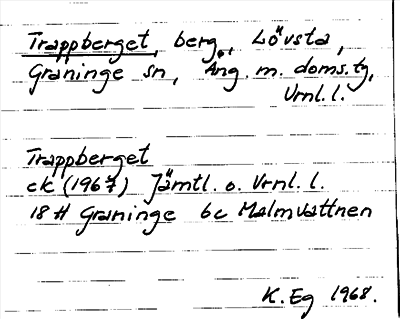 Trappberget, berg, Lövsta,
Graninge sn, Ång. m. doms.tg,
Vrnl. l.
Trappberget
ek (1967) Jämtl. o. Vrnl. l.
18 H Graninge 6c Malmvattnen
K. Eg 1968.